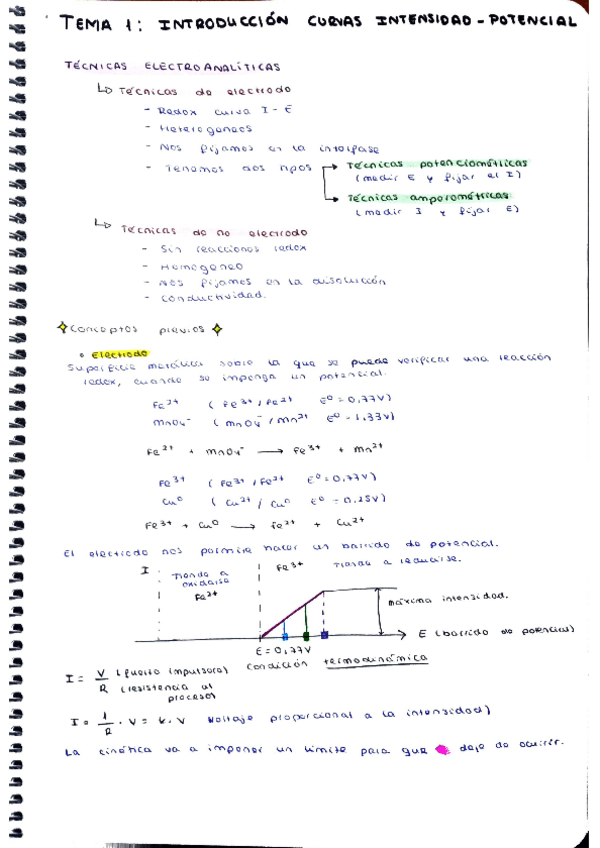 TEMA 1: INTRODUCCIÓN CURVAS INTENSIDAD - POTENCIAL
TÉCNICAS ELECTROANALÍTICAS
↳ Técnicas de electrodo
- Redox curva I - E
- Heterogeneas
- Nos fijamos en la interfase
- Tenemos dos tipos → Técnicas potenciométricas
(medir E y fijar el I)
→ Técnicas amperométricas
(medir I y fijar E)
↳ Técnicas de no electrodo
- Sin reacciones redox
- Homogeneo
- Nos fijamos en la disolución
- Conductividad.
Conceptos previos
• Electrodo
Superficie metálica sobre la que se puede verificar una reacción
redox, cuando se imponga un potencial.
Fe²⁺ (Fe³⁺/Fe²⁺ E⁰ = 0,77V)
MnO₄⁻ (MnO₄⁻/Mn²⁺ E⁰ = 1.33V)
Fe²⁺ + MnO₄⁻ → Fe³⁺ + Mn²⁺
Fe³⁺ (Fe³⁺/Fe²⁺ E⁰ = 0,77V)
Cu⁰ (Cu²⁺/Cu⁰ E⁰ = 0.25V)
Fe³⁺ + Cu⁰ → Fe²⁺ + Cu²⁺
El electrodo nos permite hacer un barrido de potencial.
I Tiende a oxidarse Fe²⁺
Fe³⁺ Tiende a reducirse.
máxima intensidad.
E (barrido de potencial)
E = 0,77V
Condición termodinámica
I = V/R (fuerza impulsora) (resistencia al proceso)
I = 1/R · V = k · V Voltaje proporcional a la intensidad)
La cinética va a imponer un límite para que deje de ocurrir.